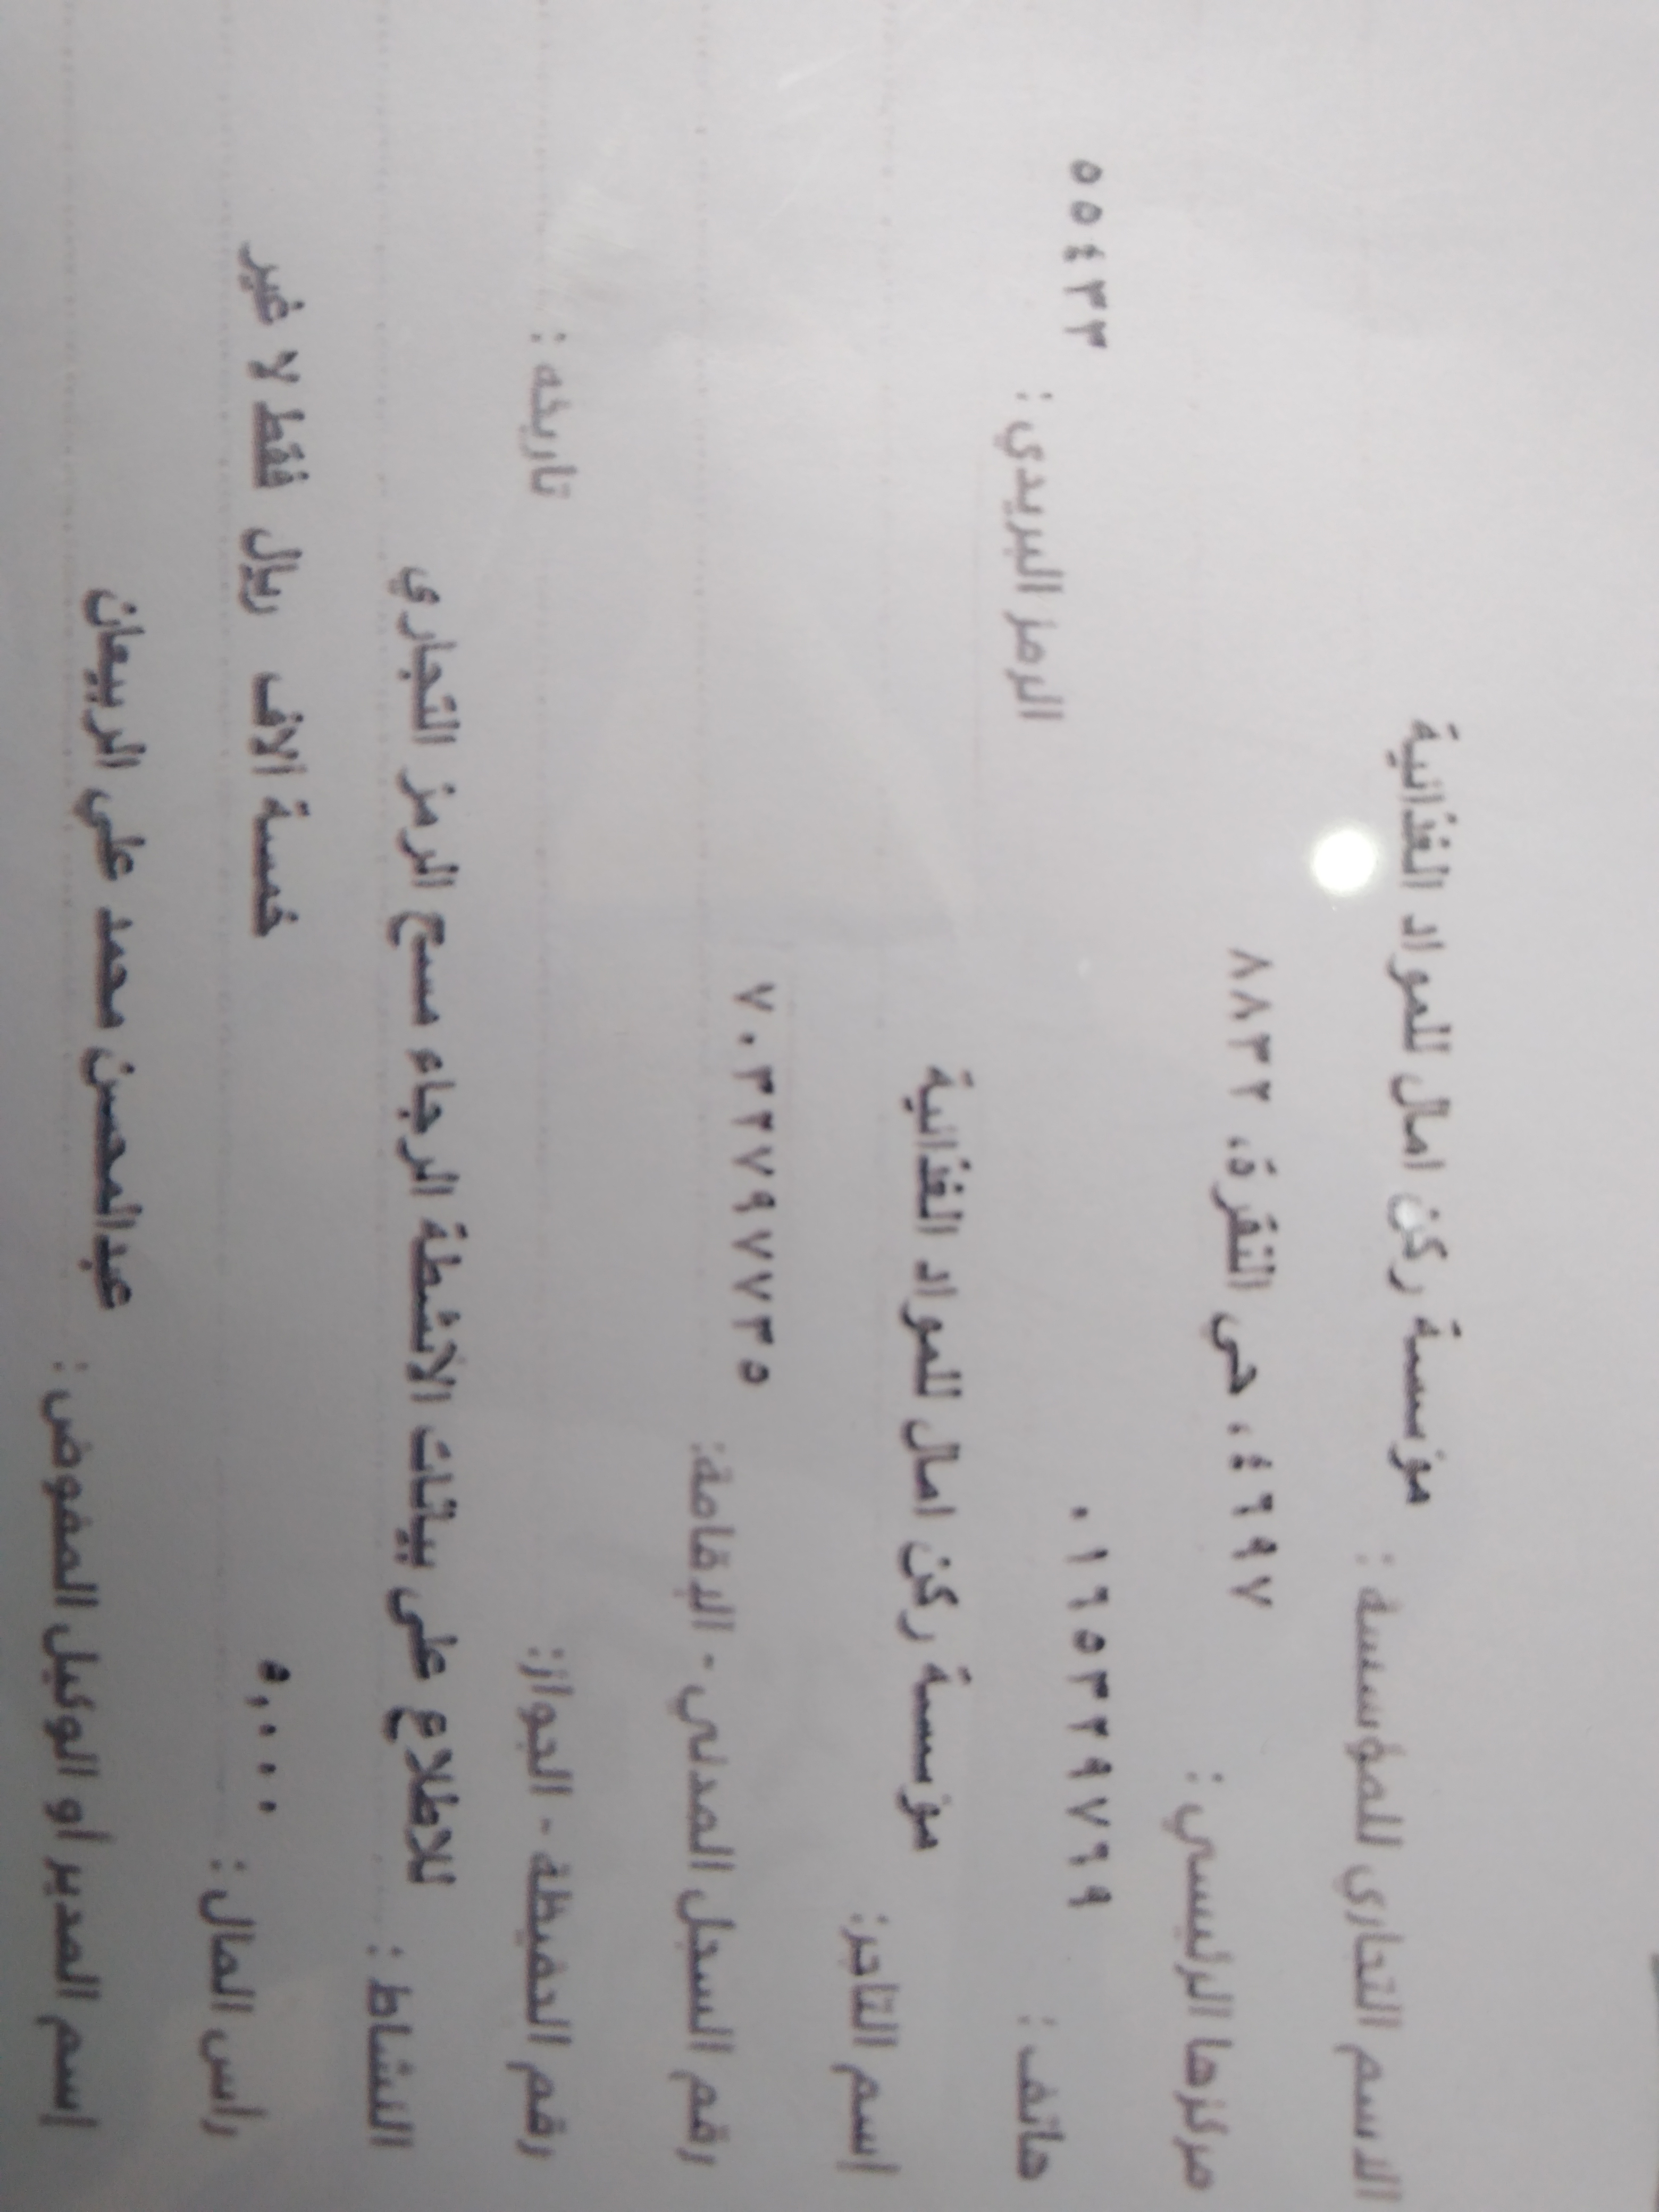 الاسم التجاري للمؤسسة : مؤسسة ركن امال للمواد الغذائية
مركزها الرئيسي : ٤٦٩٧، حي النقرة، ٨٨٣٢
هاتف : ٠١٦٥٣٢٩٧٦٩ الرمز البريدي : ٥٥٤٣٣
إسم التاجر: مؤسسة ركن امال للمواد الغذائية
رقم السجل المدني - الإقامة: ٧٠٣٢٧٩٧٧٣٥
رقم الحفيظة - الجواز: تاريخه :
النشاط : للاطلاع على بيانات الانشطة الرجاء مسح الرمز التجاري
رأس المال : ٥,٠٠٠ خمسة الاف ريال فقط لا غير
إسم المدير أو الوكيل المفوض : عبدالمحسن محمد علي الربيعان